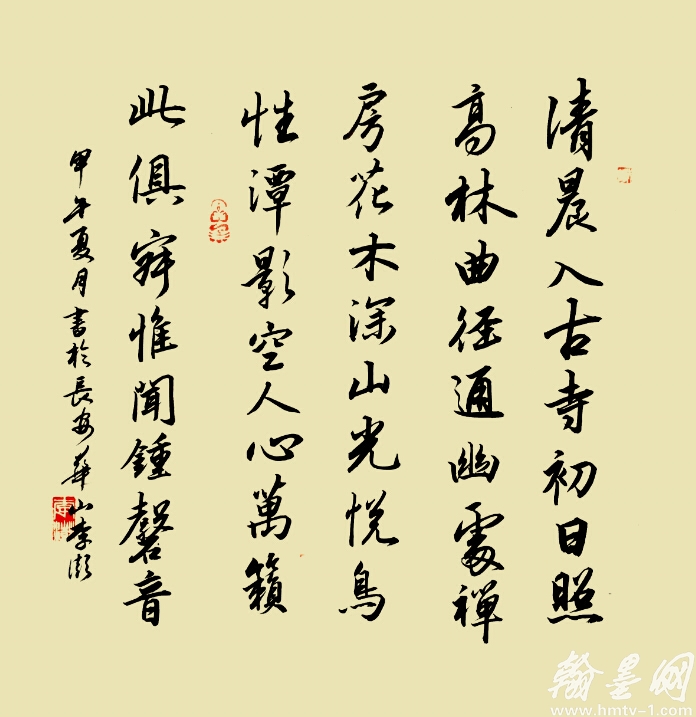 清晨入古寺初日照
高林曲径通幽處禪
房花木深山光悅鳥
性潭影空人心萬籟
此俱寂惟聞鍾磬音
甲午夏月書於長安華山李
翰墨网
www.hmtv-1.com